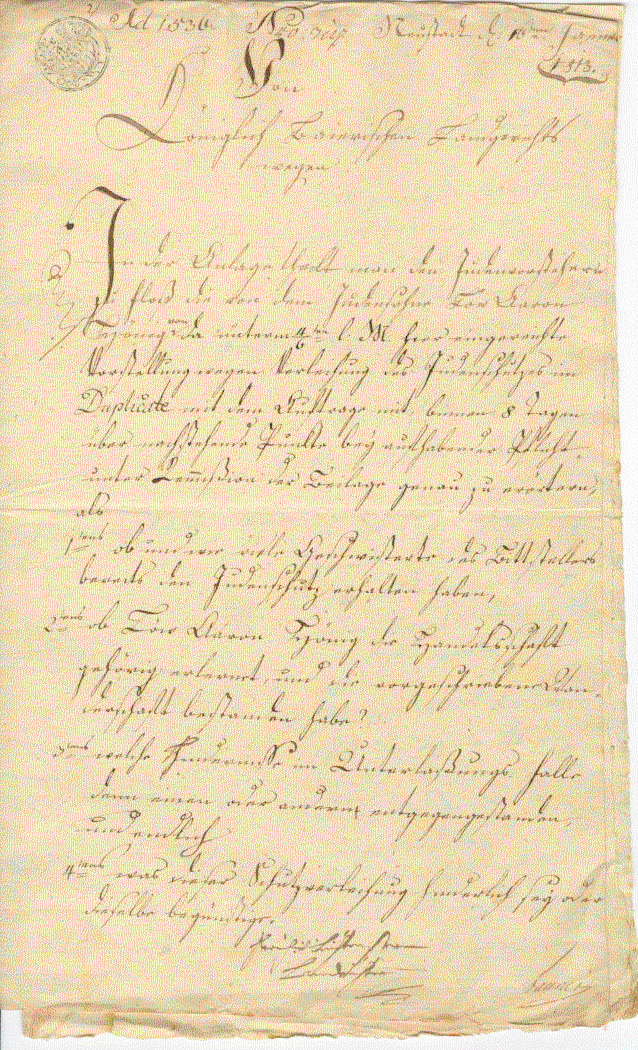 Ad 1536. Neustadt d. Januar
1813.
Von
Königlich Baierischen Landgerichts
wegen
In der Anlage theilt man den Judenvorstehern
zu Floß die von dem Judensohne Löw Aaron
da unterm l. M. hier eingereichte
Vorstellung wegen Verleihung des Judenschutzes im
Duplicate mit dem Auftrage mit, binnen 8 Tagen
über nachstehende Punkte bey aufhabender Pflicht,
unter Remission der Beilage genau zu erörtern,
als
1tens ob und wie viele Geschwisterte des Bittstellers
bereits den Judenschutz erhalten haben,
2tens ob Löw Aaron die Handelsschaft
gehörig erlernet, und die vorgeschriebene Wan-
derschaft bestanden habe?
3tens welche Hindernisse im Unterlaßungs Falle
dem einen oder andern entgegengestanden,
und endlich
4tens was dieser Schutzverleihung hinderlich sey oder
dieselbe begünstige.